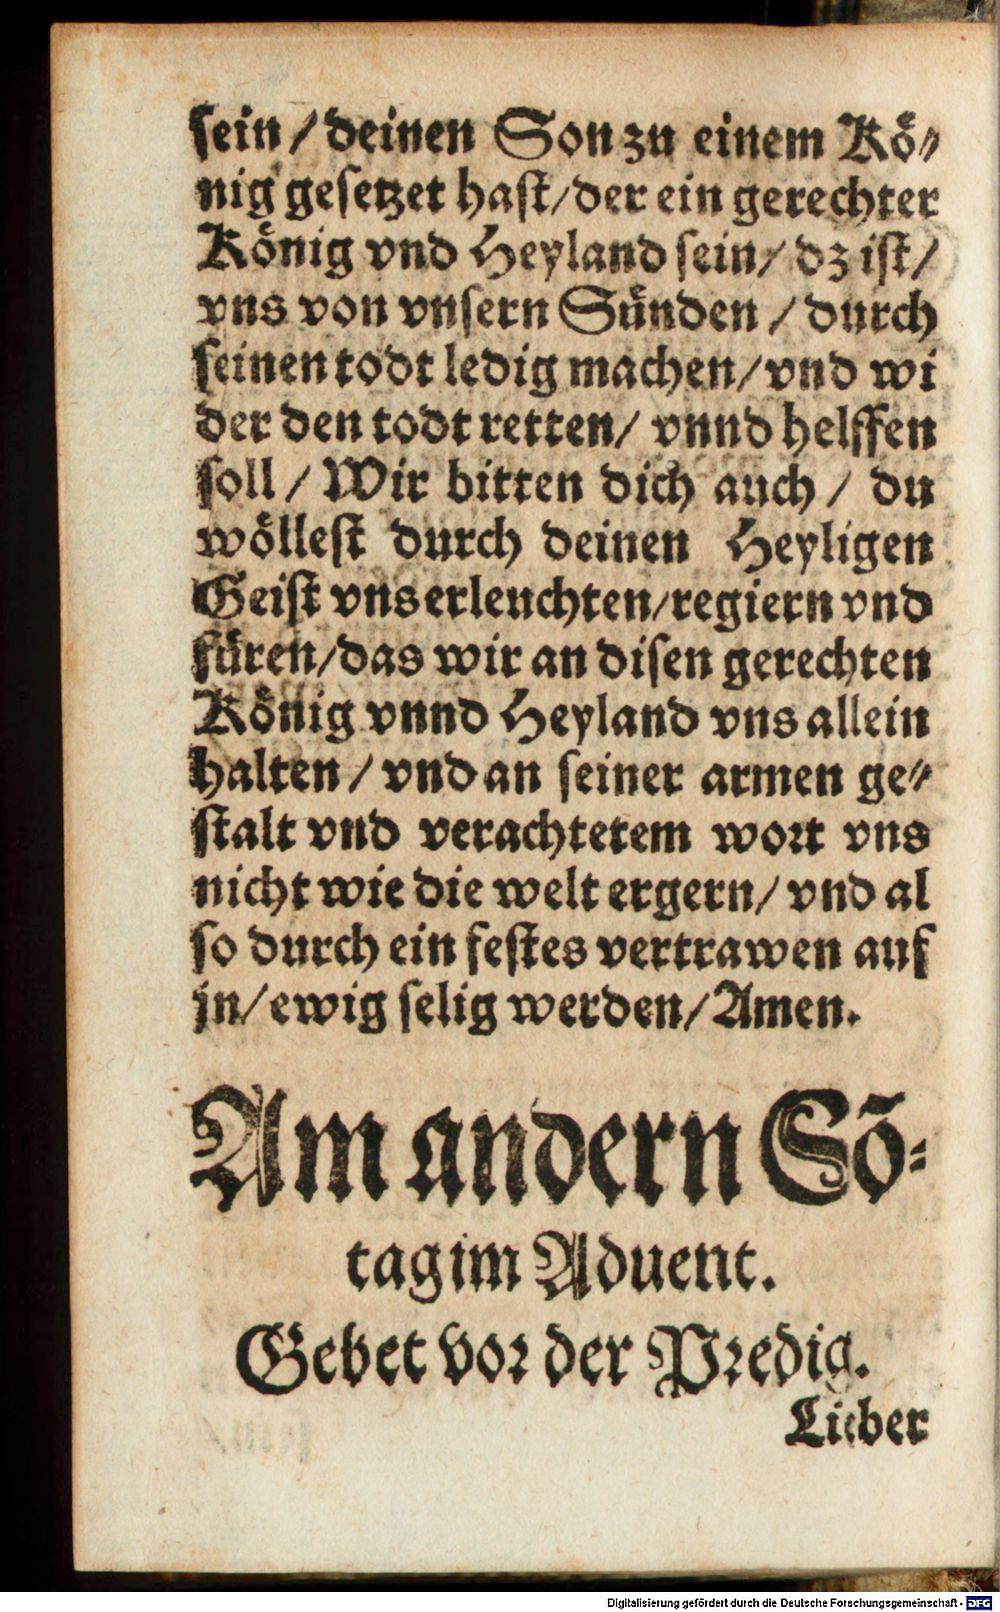 sein / deinen Son zu einem Kö⸗
nig gesetzet hast/der ein gerechter
König vnd Heyland sein/ dz ist/
vns von vnsern Sünden / durch
seinen todt ledig machen/vnd wi
der den todt retten/ vnnd helffen
soll / Wir bitten dich auch / du
wöllest durch deinen Heyligen
Geist vns erleuchten/regiern vnd
füren/das wir an disen gerechten
König vnnd Heyland vns allein
halten / vnd an seiner armen ge⸗
stalt vnd verachtetem wort vns
nicht wie die welt ergern/ vnd al
so durch ein festes vertrawen auf
jn/ ewig selig werden/ Amen.
Am andern Sõ⸗
tag im Aduent.
Gebet vor der Predig.
Lieber
Digitalisierung gefördert durch die Deutsche Forschungsgemeinschaft - DFG